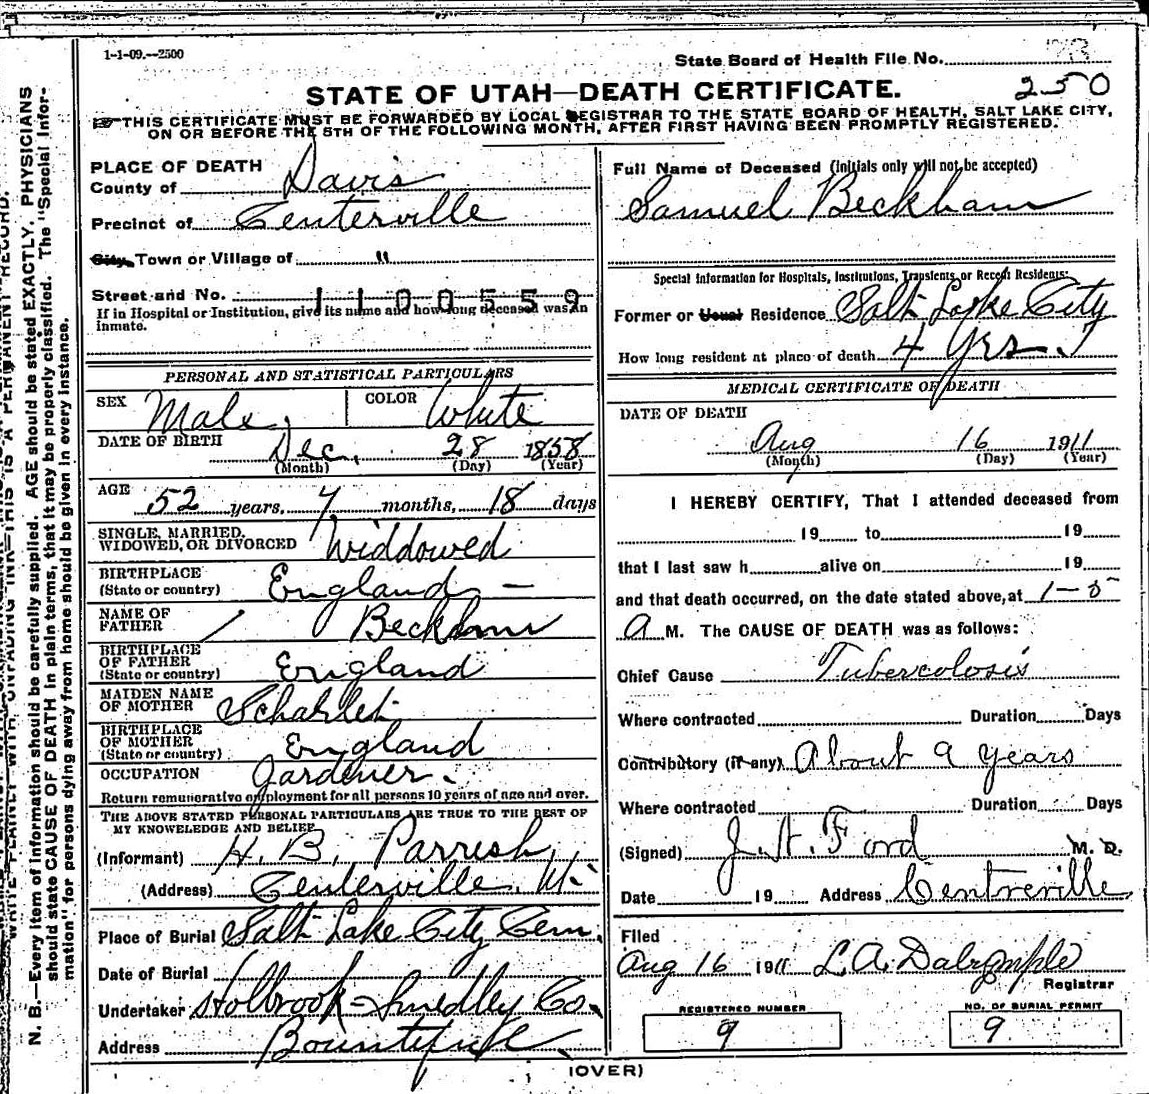 1-1-09.--2500
State Board of Health File No.
250
STATE OF UTAH—DEATH CERTIFICATE.
THIS CERTIFICATE MUST BE FORWARDED BY LOCAL REGISTRAR TO THE STATE BOARD OF HEALTH, SALT LAKE CITY,
ON OR BEFORE THE 5TH OF THE FOLLOWING MONTH, AFTER FIRST HAVING BEEN PROMPTLY REGISTERED.
PLACE OF DEATH
County of Davis
Precinct of Centerville
City, Town or Village of "
Street and No. 1100559
If in Hospital or Institution, give its name and how long deceased was an
inmate.
PERSONAL AND STATISTICAL PARTICULARS
SEX Male, COLOR White
DATE OF BIRTH Dec. 28 1858
(Month) (Day) (Year)
AGE 52 years, 7 months, 18 days
SINGLE, MARRIED,
WIDOWED, OR DIVORCED Widdowed
BIRTHPLACE
(State or country) England —
NAME OF
FATHER / Beckham
BIRTHPLACE
OF FATHER
(State or country) England
MAIDEN NAME
OF MOTHER
BIRTHPLACE
OF MOTHER
(State or country) England
OCCUPATION Gardener.
Return remunerative employment for all persons 10 years of age and over.
THE ABOVE STATED PERSONAL PARTICULARS ARE TRUE TO THE BEST OF
MY KNOWLEDGE AND BELIEF
(Informant) H. B. Parrish,
(Address) Centerville, Ut.
Place of Burial Salt Lake City Cem.
Date of Burial
Undertaker Holbrook-Smedley Co.
Address Bountiful
Full Name of Deceased (initials only will not be accepted)
Samuel Beckham
Special Information for Hospitals, Institutions, Transients, or Recent Residents:
Former or Usual Residence Salt Lake City
How long resident at place of death 4 Yrs.
MEDICAL CERTIFICATE OF DEATH
DATE OF DEATH
Aug 16 1911
(Month) (Day) (Year)
I HEREBY CERTIFY, That I attended deceased from
19 to 19
that I last saw h alive on 19
and that death occurred, on the date stated above, at 1-5
A M. The CAUSE OF DEATH was as follows:
Chief Cause Tubercolosis
Where contracted Duration Days
Contributory (if any) About 9 years
Where contracted Duration Days
(Signed) J. H. Ford M. D.
Date 19 Address Centreville
Filed
Aug 16 1911 L. A. Dalrymple
Registrar
REGISTERED NUMBER
9
NO. OF BURIAL PERMIT
9
(OVER)
N. B.—Every item of information should be carefully supplied. AGE should be stated EXACTLY. PHYSICIANS
should state CAUSE OF DEATH in plain terms, that it may be properly classified. The "Special Infor-
mation" for persons dying away from home should be given in every instance.